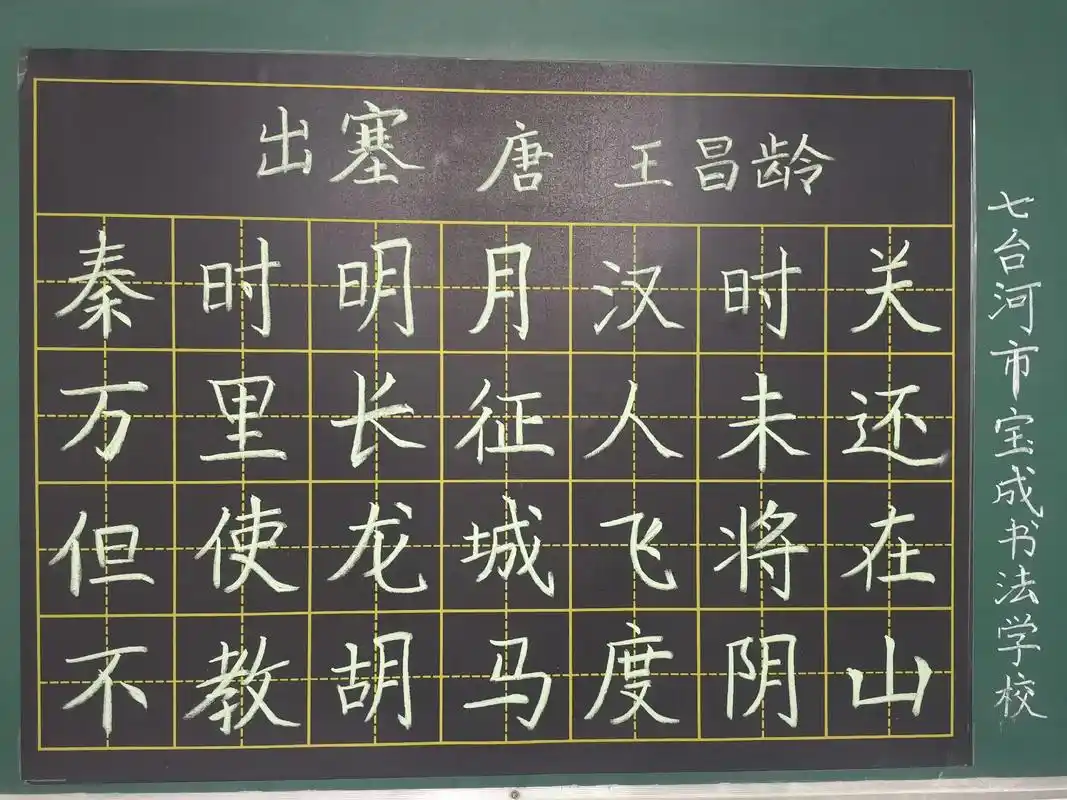 出塞 唐 王昌龄
秦时明月汉时关
万里长征人未还
但使龙城飞将在
不教胡马度阴山
七台河市宝成书法学校